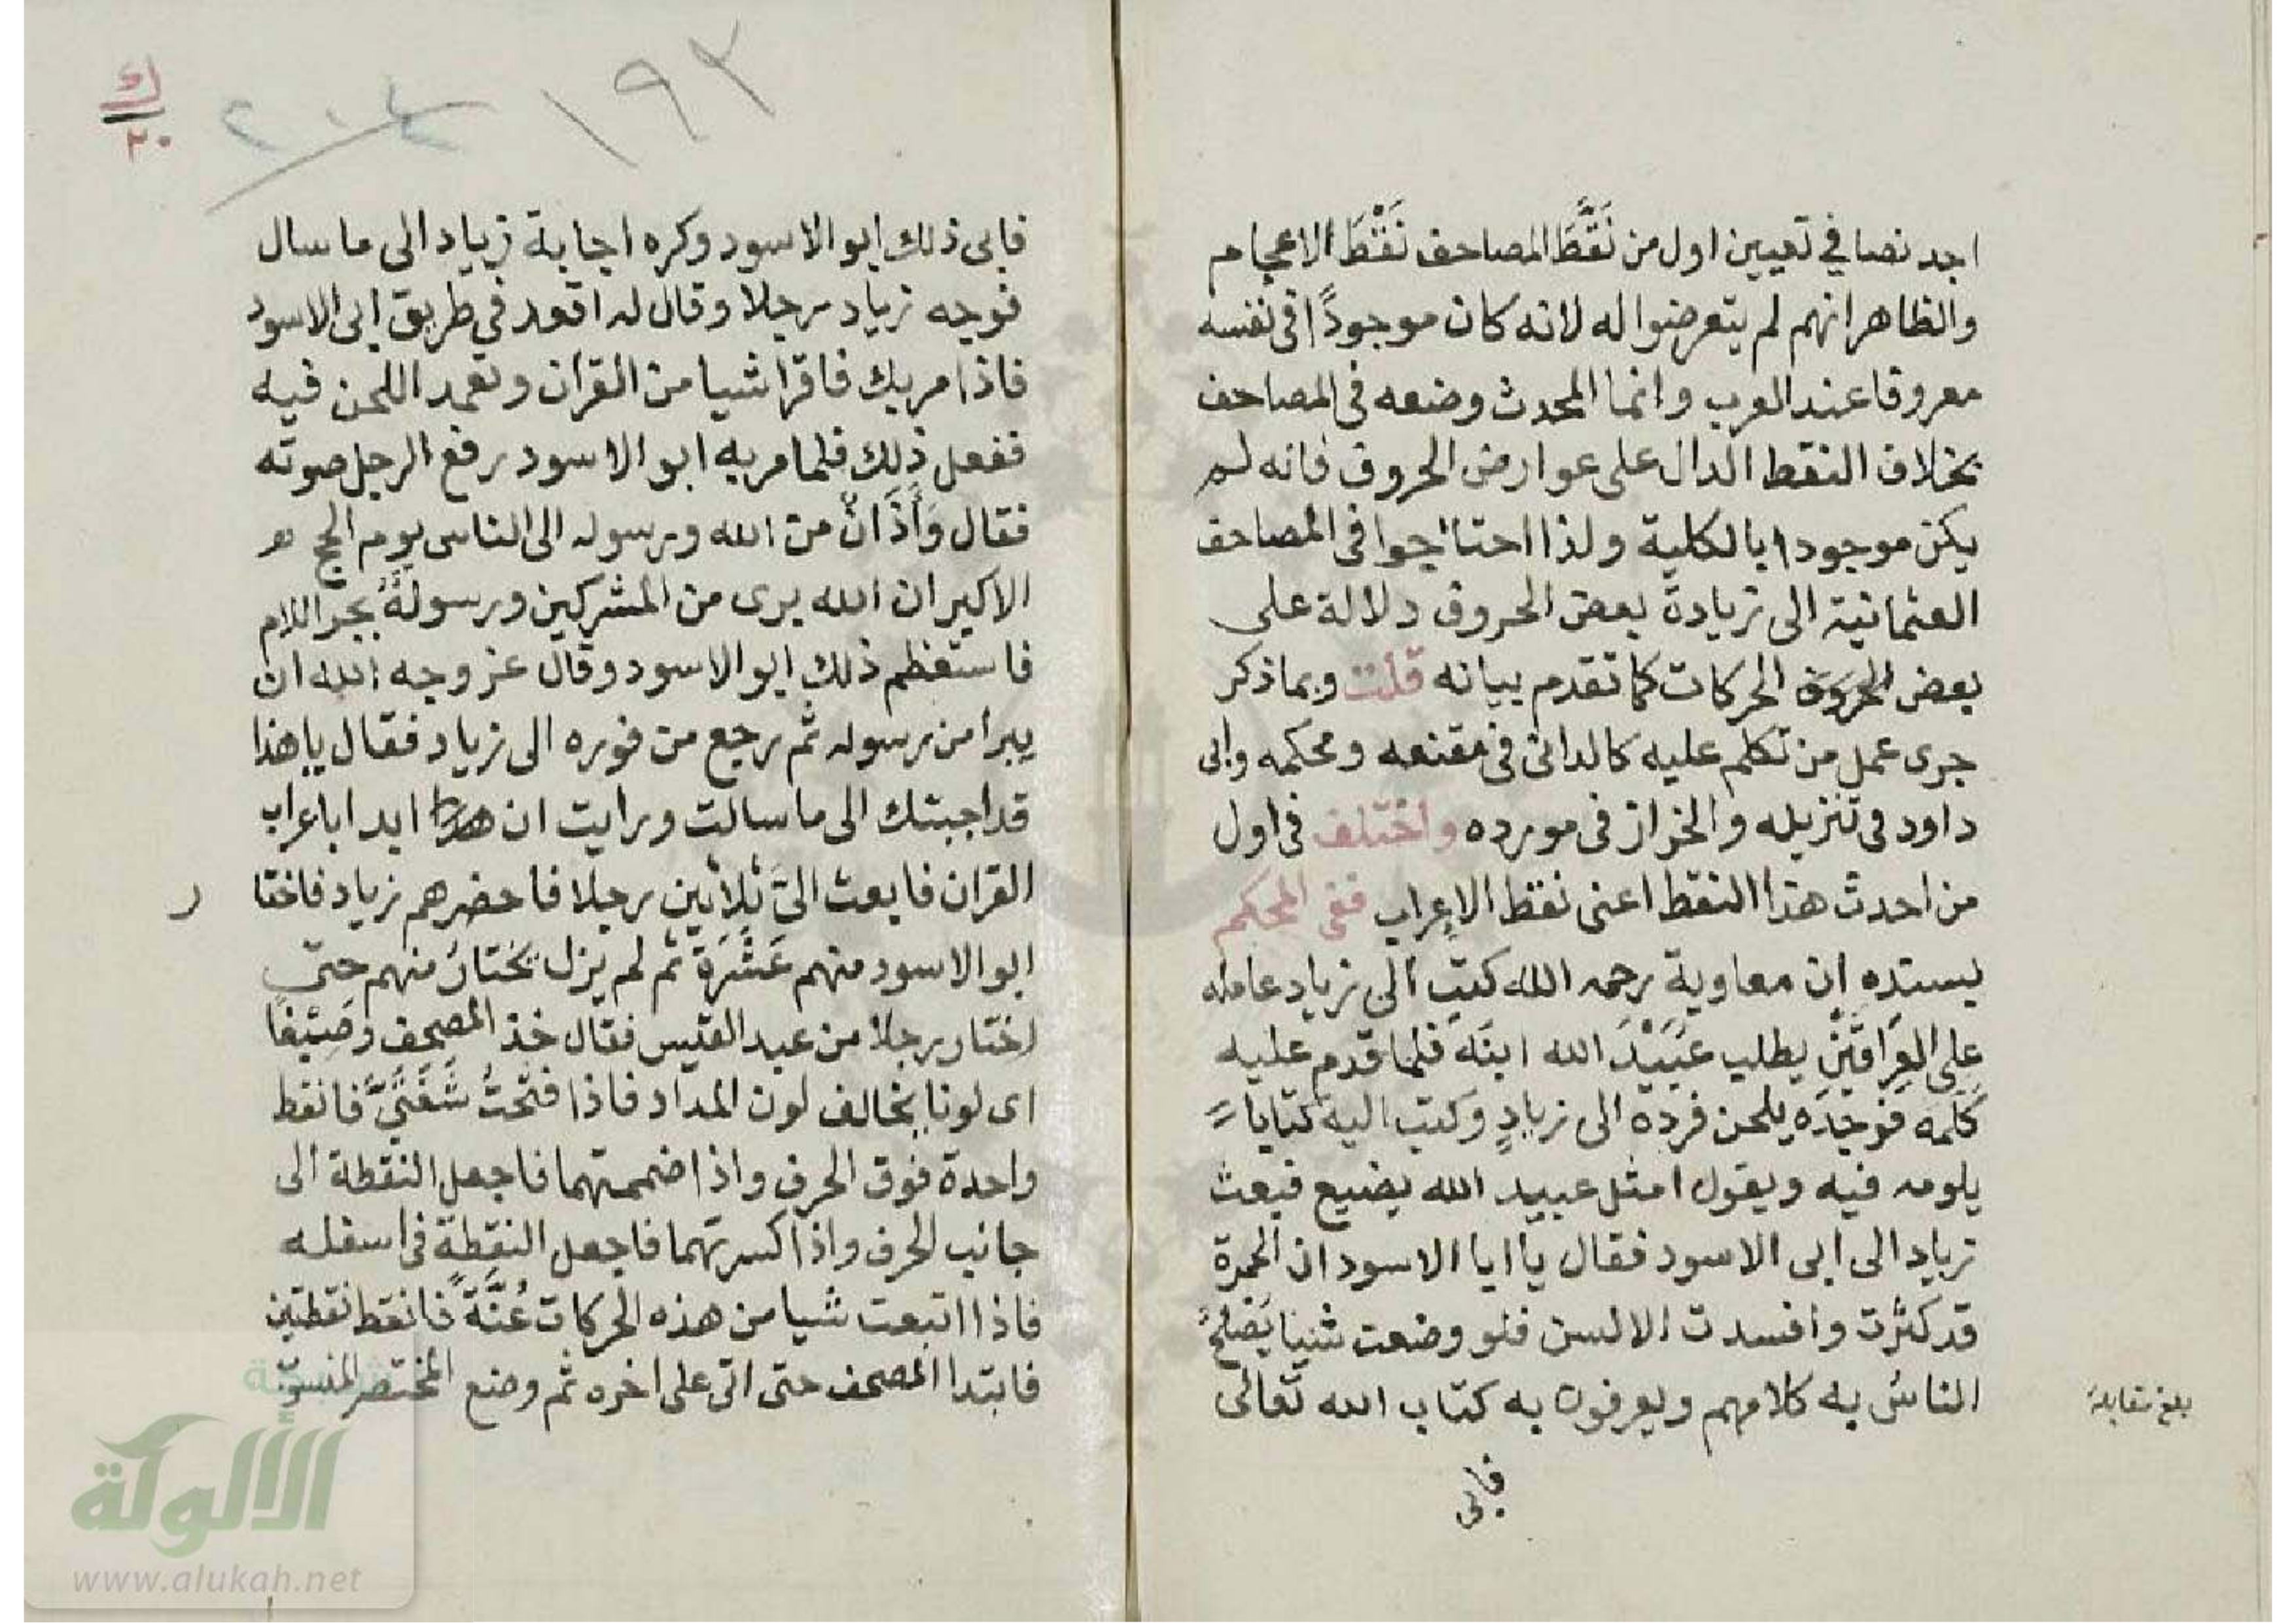 اجد نصا في تعيين اول من نَقَّطَ المصاحف نَقْطَ الاعجام
والظاهر انهم لم يتعرضوا له لانه كان موجودًا في نفسه
معروفا عند العرب وانما المحدث وضعه في المصاحف
بخلاف النقط الدال على عوارض الحروف فانه لم
يكن موجودا بالكلية ولذا احتاجوا في المصاحف
العثمانية الى زيادة بعض الحروف دلالة على
بعض الحركات كما تقدم بيانه قلت وبما ذكر
جرى عمل من تكلم عليه كالداني في مقنعه ومحكمه وابى
داود في تنزيله والخراز في مورده واختلف في اول
من احدث هذا النقط اعنى نقط الاعراب ففي المحكم
بسنده ان معاوية رحمه الله كتب الى زياد عامله
على العِرَاقَيْنِ يطلب عُبَيْدَ الله ابنَه فلما قدم عليه
كَلَّمَه فوجدَه يلحن فرده الى زيادٍ وكتب اليه كتابا
يلومه فيه ويقول امثل عبيد الله يضيع فبعث
زياد الى ابى الاسود فقال يا ابا الاسود ان الحمرة
قد كثُرت وافسدت الالسن فلو وضعت شيئا يُصْلِحُ
الناسُ به كلامهم ويعرفون به كتاب الله تعالى
بلغ مقابلة
فابى
١٩٣
٢٠٤
ك
٢٠
فابى ذلك ابو الاسود وكره اجابة زياد الى ما سال
فوجه زياد رجلا وقال له اقعد في طريق ابى الاسود
فاذا مر بك فاقرا شيا من القران وتعمد اللحن فيه
ففعل ذلك فلما مر به ابو الاسود رفع الرجل صوته
فقال وَأَذَانٌ من الله ورسوله الى الناس يوم الحج
الاكبر ان الله برى من المشركين ورسولهُ بجر اللام
فاستعظم ذلك ابو الاسود وقال عز وجه الله ان
يبرأ من رسوله ثم رجع من فوره الى زياد فقال يا هذا
قد اجبتك الى ما سالت ورايت ان ابدا باعراب
القران فابعث الىَّ ثلاثين رجلا فاحضرهم زياد فاختا
ر
ابو الاسود منهم عَشَرَةً ثم لم يزل يختارُ منهم حتى
اختار رجلا من عبد القيس فقال خذ المصحف وصِبْغًا
اى لونا يخالف لون المداد فاذا فتحْتُ شَفَتَىَّ فانقط
واحدة فوق الحرف واذا ضممتهما فاجعل النقطة الى
جانب الحرف واذا كسرتهما فاجعل النقطة في اسفله
فاذا اتبعت شيا من هذه الحركات غُنَّةً فانقط نقطتين
فابتدا المصحف حتى اتى على اخره ثم وضع المختصر المنسوب
الألوكة
www.alukah.net